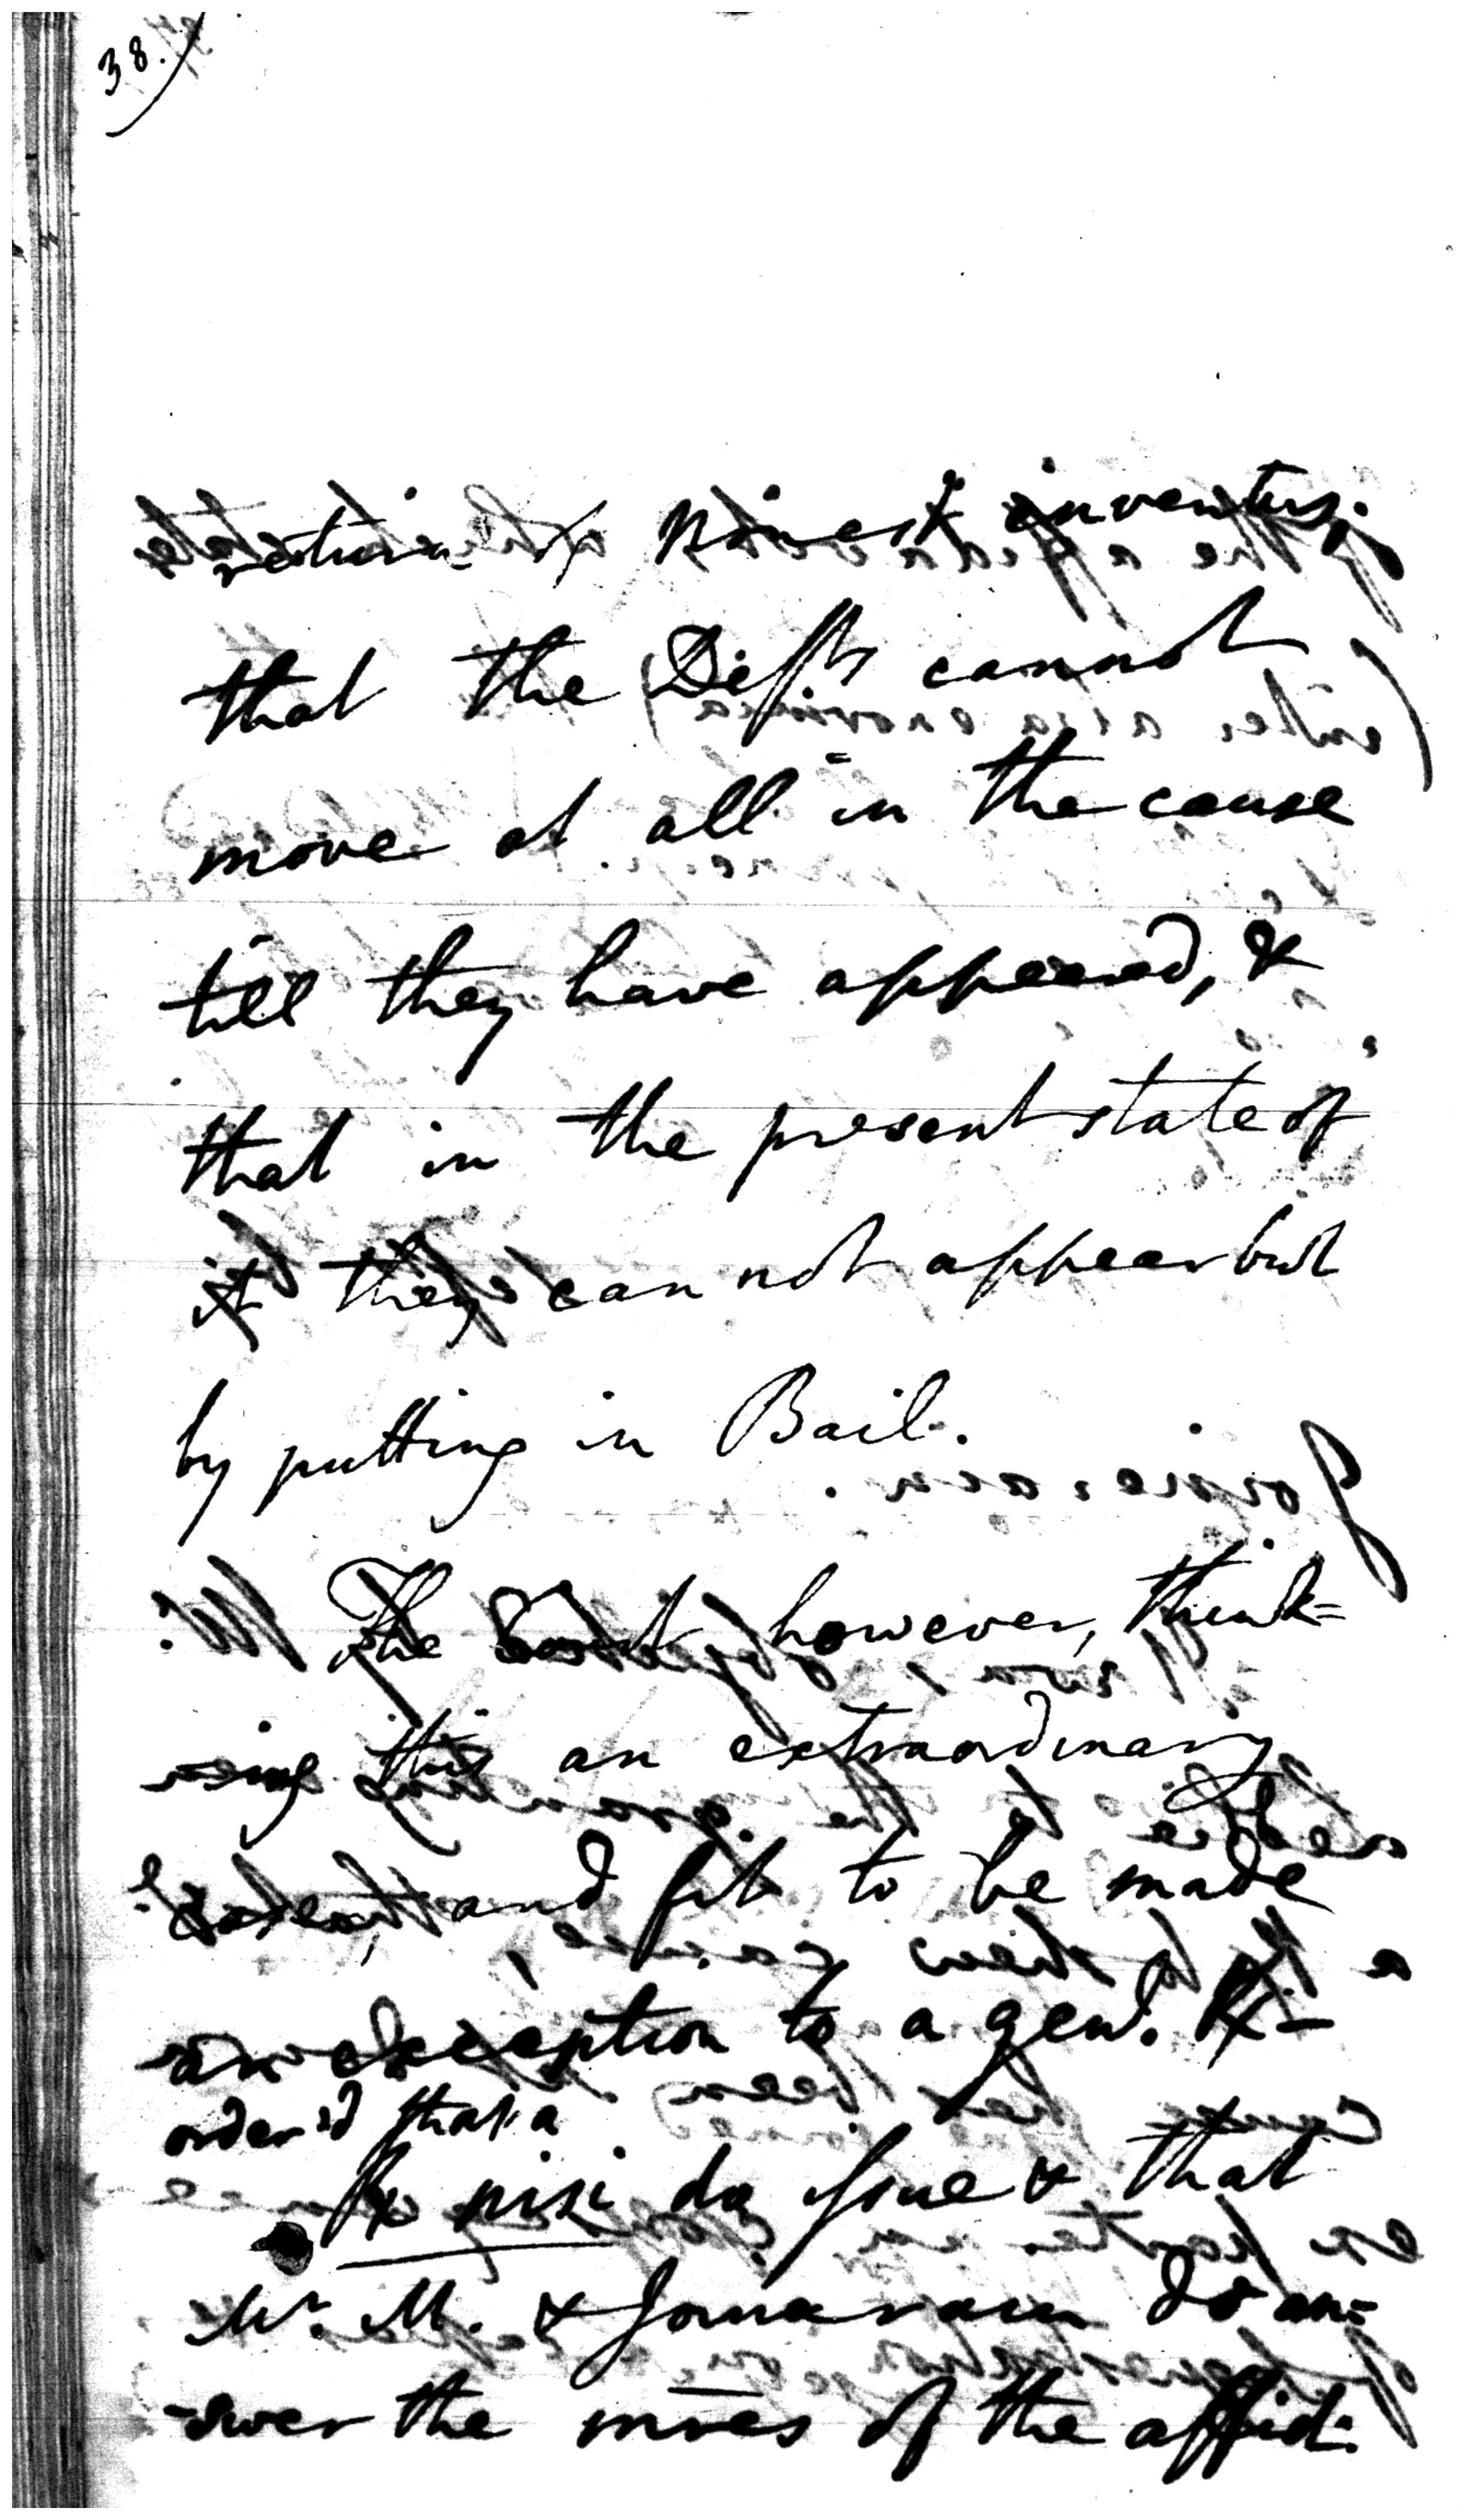 38.
return of non est inventus.
that the Defts cannot
move at all in the cause
till they have appeared, &
that in the present state of
it they can not appear but
by putting in Bail.
The Court, however, think=
=ing this an extraordinary
case, and fit to be made
an exception to a genl. Rx—
order'd that a
Rx nisi do issue & that
Mr. M. & Jomaram do an=
=swer the mres of the affid: